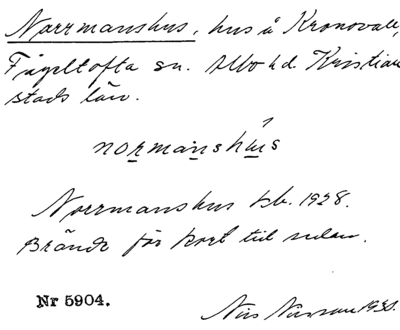 Norrmanshus, hus å Kronovall,
Fågeltofta sn. Albo hd. Kristian
stads län.
normanshús
Norrmanshus kb. 1928.
Brände för kort tid sedan.
Nr 5904.
Nils 1930.